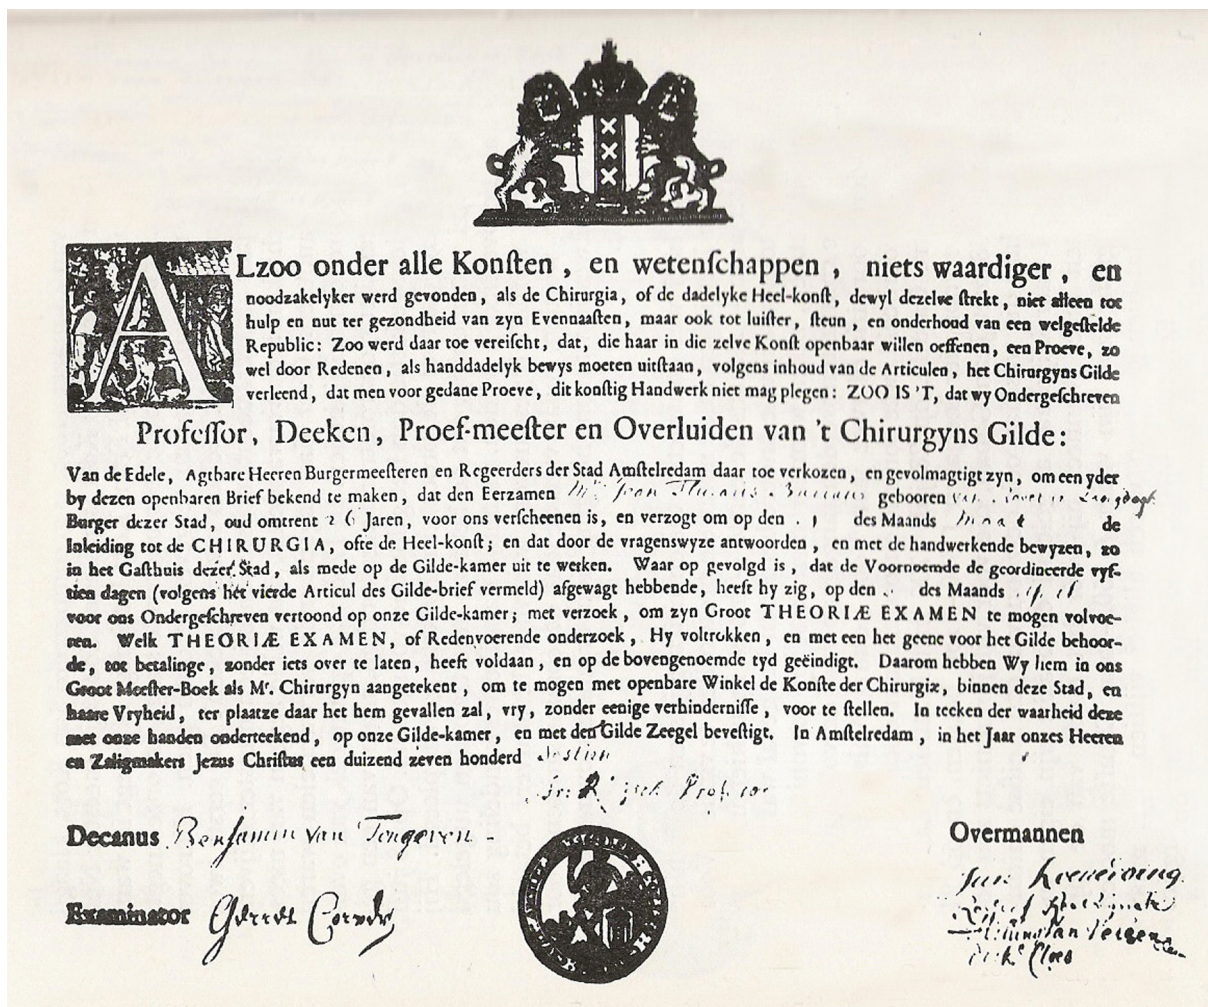 ALzoo onder alle Konſten, en wetenſchappen, niets waardiger, en
noodzakelyker werd gevonden, als de Chirurgia, of de dadelyke Heel-konſt, dewyl dezelve ſtrekt, niet alleen tot
hulp en nut ter gezondheid van zyn Evennaaſten, maar ook tot luiſter, ſteun, en onderhoud van een welgeſtelde
Republic: Zoo werd daar toe vereiſcht, dat, die haar in die zelve Konſt openbaar willen oeffenen, een Proeve, zo
wel door Redenen, als handdadelyk bewys moeten uitſtaan, volgens inhoud van de Articulen, het Chirurgyns Gilde
verleend, dat men voor gedane Proeve, dit konſtig Handwerk niet mag plegen: ZOO IS 'T, dat wy Ondergeſchreven
Profeſſor, Deeken, Proef-meeſter en Overluiden van 't Chirurgyns Gilde:
Van de Edele, Agtbare Heeren Burgermeeſteren en Regeerders der Stad Amſtelredam daar toe verkozen, en gevolmagtigt zyn, om een yder
by dezen openbaren Brief bekend te maken, dat den Eerzamen gebooren van
Burger dezer Stad, oud omtrent 26 Jaren, voor ons verſcheenen is, en verzogt om op den des Maands de
Inleiding tot de CHIRURGIA, ofte de Heel-konſt; en dat door de vragenswyze antwoorden, en met de handwerkende bewyzen, zo
in het Gaſthuis dezer Stad, als mede op de Gilde-kamer uit te werken. Waar op gevolgd is, dat de Voornoemde de geordineerde vyf-
tien dagen (volgens het vierde Articul des Gilde-brief vermeld) afgewagt hebbende, heeft hy zig, op den des Maands
voor ons Ondergeſchreven vertoond op onze Gilde-kamer; met verzoek, om zyn Groot THEORIÆ EXAMEN te mogen volvoe-
ren. Welk THEORIÆ EXAMEN, of Redenvoerende onderzoek, Hy voltrokken, en met een het geene voor het Gilde behoor-
de, tot betalinge, zonder iets over te laten, heeft voldaan, en op de bovengenoemde tyd geëindigt. Daarom hebben Wy hem in ons
Groot Meeſter-Boek als Mr. Chirurgyn aangetekent, om te mogen met openbare Winkel de Konſte der Chirurgiæ, binnen deze Stad, en
haare Vryheid, ter plaatze daar het hem gevallen zal, vry, zonder eenige verhinderniſſe, voor te ſtellen. In teeken der waarheid deze
met onze handen onderteekend, op onze Gilde-kamer, en met den Gilde Zeegel beveſtigt. In Amſtelredam, in het Jaar onzes Heeren
en Zaligmakers Jezus Chriſtus een duizend zeven honderd
Profeſſor
Decanus Benjamin van Tongeren
Overmannen
Examinator Gerret